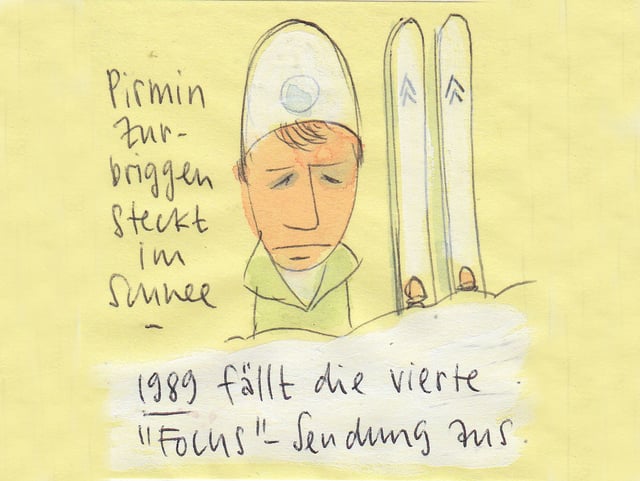 Pirmin
Zur-
briggen
steckt
im
Schnee
–
1989 fällt die vierte
"Focus"-Sendung aus.